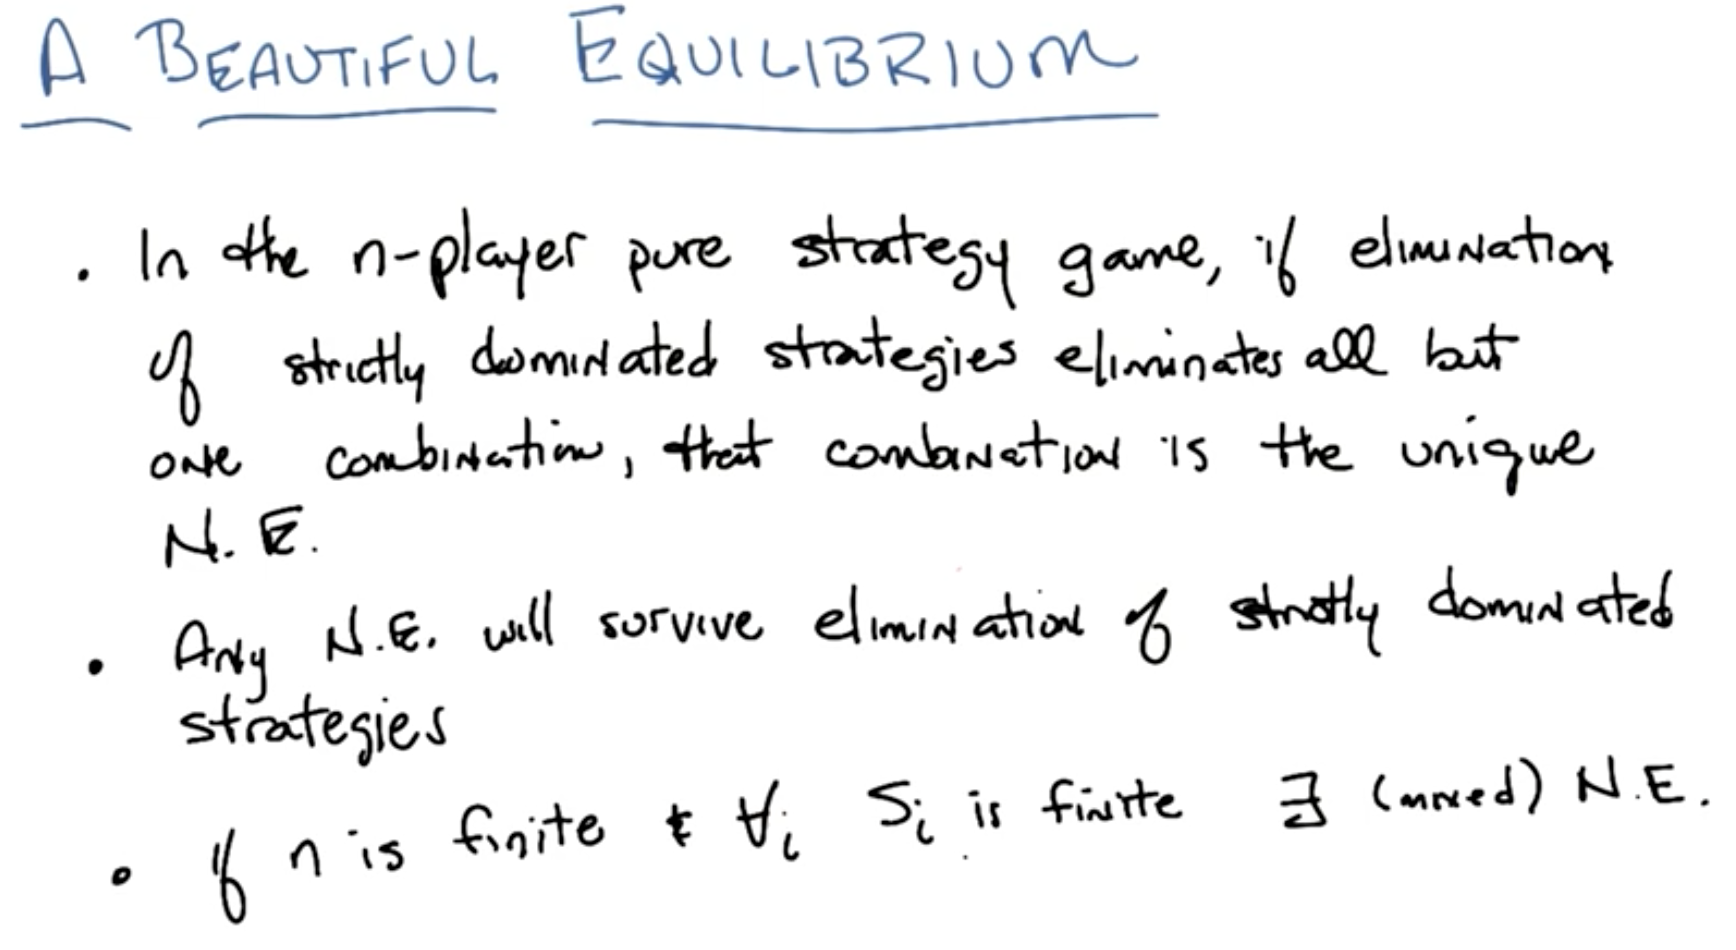 A BEAUTIFUL EQUILIBRIUM
• In the n-player pure strategy game, if elimination
of strictly dominated strategies eliminates all but
one combination, that combination is the unique
N.E.
• Any N.E. will survive elimination of strictly dominated
strategies
• If n is finite & ∀i Si is finite ∃ (mixed) N.E.